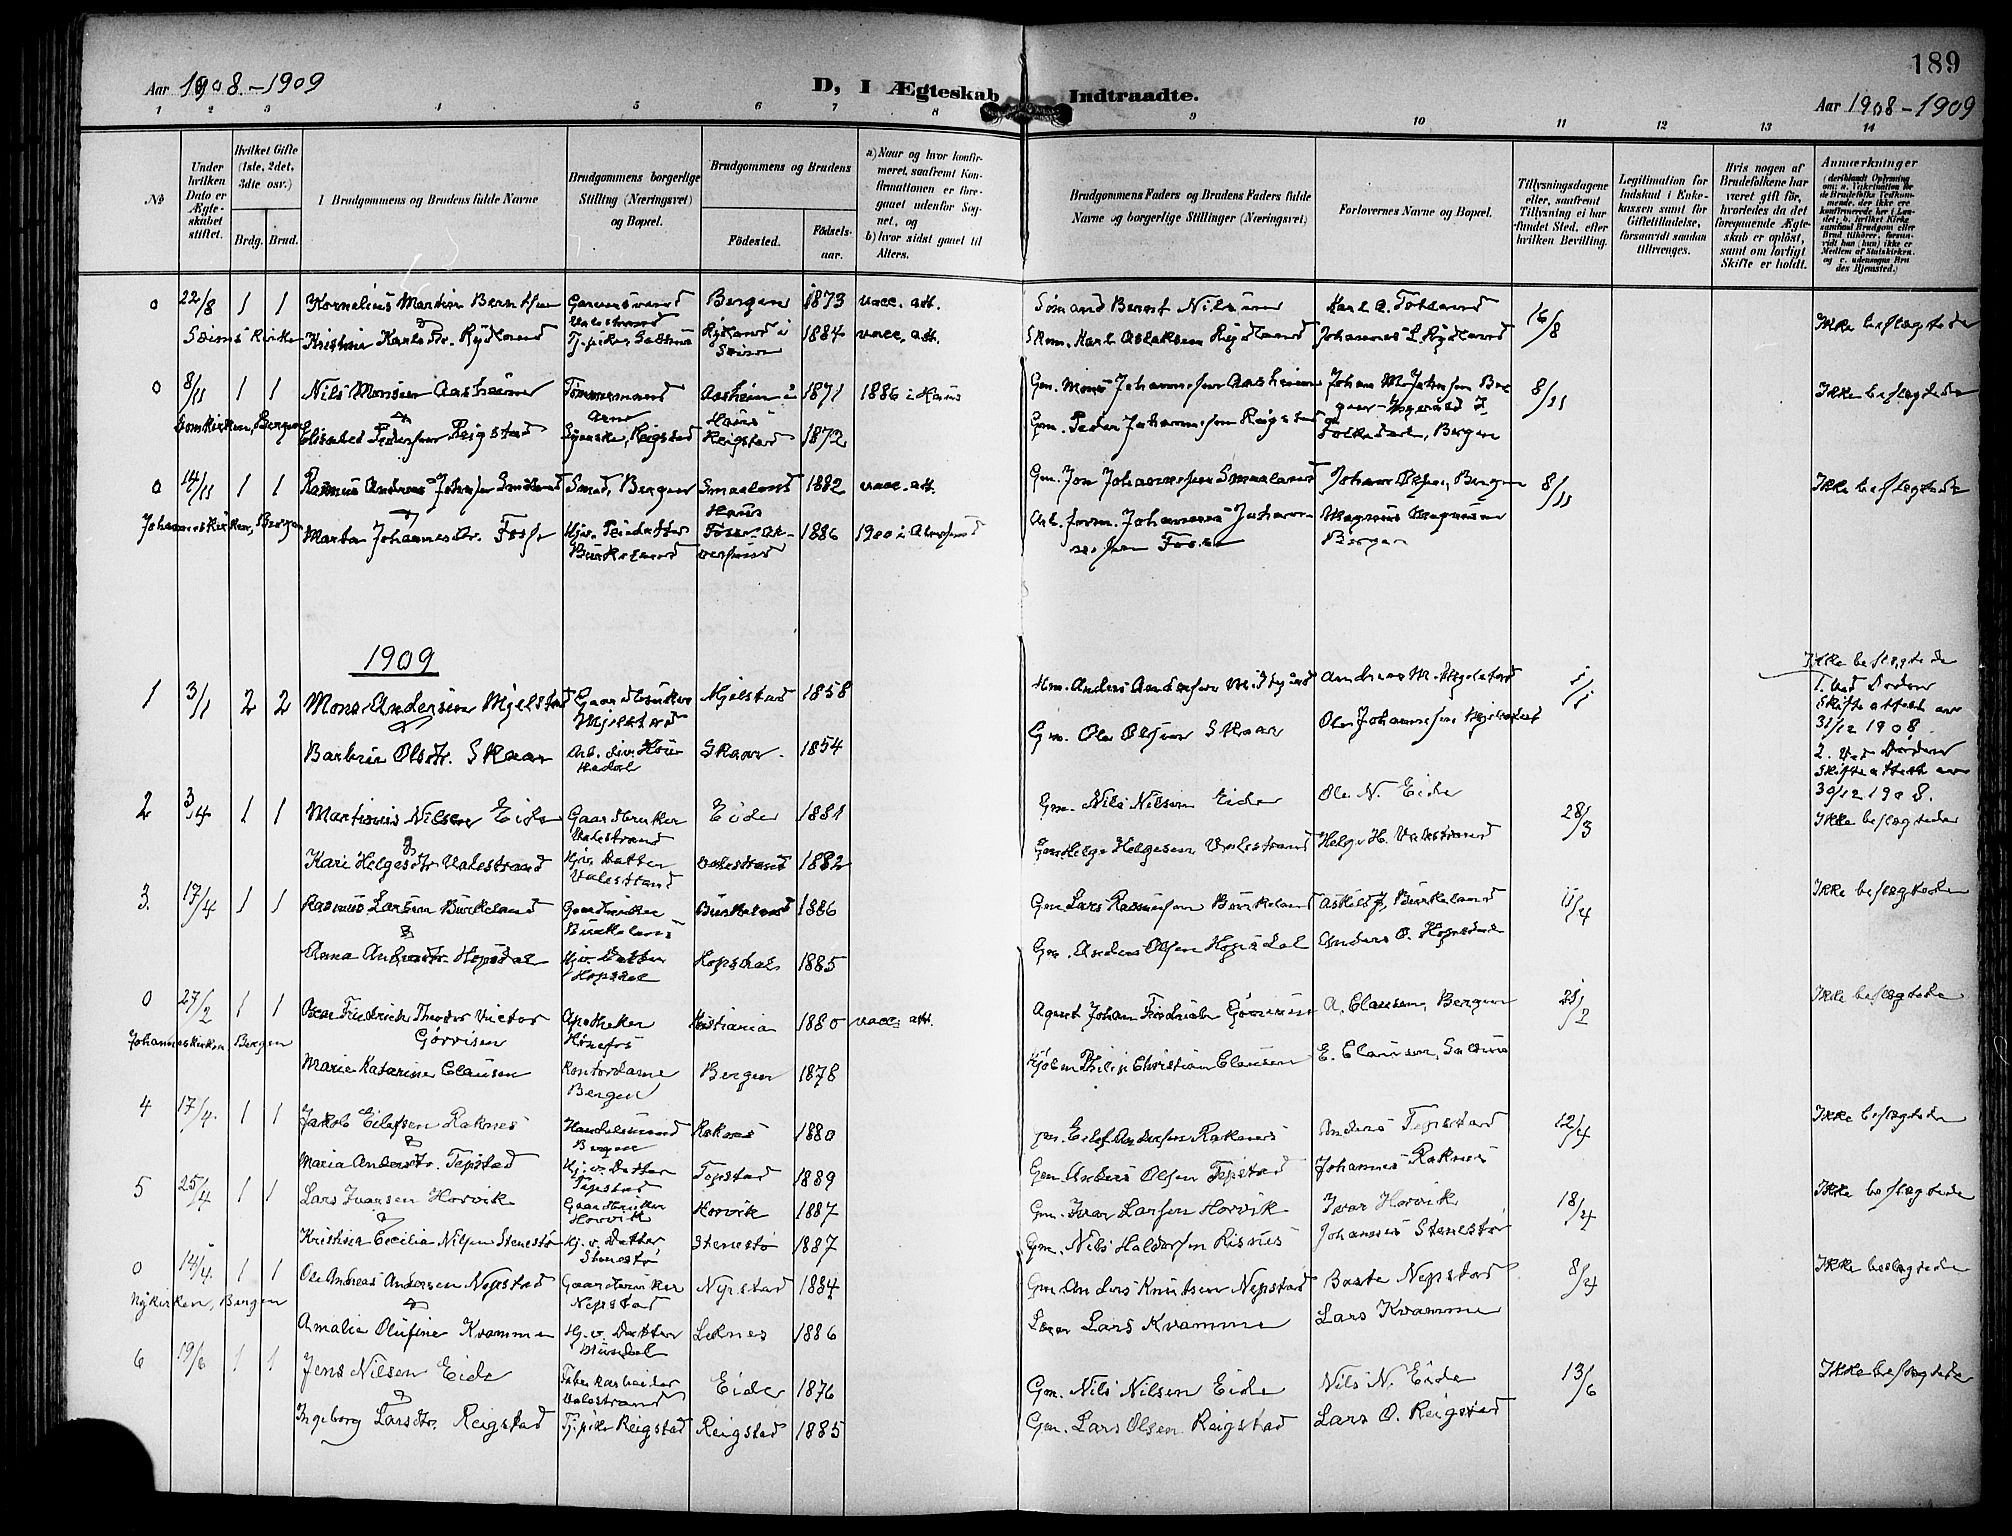 189
Aar 1908.-1909
D, I Ægteskab Indtraadte.
Aar 1908-1909
1 2 3 4 5 6 7 8 9 10 11 12 13 14
No
Under hvilken Dato er Ægteskabet stiftet.
Hvilket Gifte (1ste, 2det, 3die osv.)
Brdg. Brud.
I Brudgommens og Brudens fulde Navne
Brudgommens borgerlige Stilling (Næringsvei) og Bopæl.
Brudgommens og Brudens
Fødested.
Fødselsaar.
a) Naar og hvor konfirmeret, saafremt Konfirmationen er foregaaet udenfor Sognet, og
b) hvor sidst gaaet til Alters.
Brudgommens Faders og Brudens Faders fulde Navne og borgerlige Stillinger (Næringsvei)
Forlovernes Navne og Bopæl.
Tillysningsdagene eller, saafremt Tillysning ei har fundet Sted, efter hvilken Bevilling.
Legitimation for Indskud i Enkekassen samt for Giftetilladelse, forsaavidt saadan tiltrænges.
Hvis nogen af Brudefolkene har været gift før, hvorledes da det foregaaende Ægteskab er opløst, samt om lovligt Skifte er holdt.
Anmærkninger
0 22/8 1 1 Kornelius Martin Berntsen Valestrand Bergen 1873 vacc. att. Sømand Bernt Nilsen Karl A. Totland 16/8 Ikke beslægtede
Seims Kirke Kristine Karlsdtr. Rydland Tj.pike Rydland i Seim 1884 vacc. att. Karl Aslaksen Rydland Johannes L. Rydland
0 8/11 1 1 Nils Monsen Aasheim Tømmermand Arne Aasheim i Haus 1871 1886 i Haus Gm. Mons Johannessen Aasheim 8/11 Ikke beslægtede
Domkirken, Bergen Elisabet Pedersen Reigstad Syerske, Reigstad Reigstad 1872 Gm. Peder Johannessen Reigstad Bergen
0 14/11 1 1 Rasmus Andreas Johnsen Smaaland Smed, Bergen Smaaland Haus 1882 vacc. att. Gm. Jon Johannessen Smaaland Johan Olsen, Bergen 8/11 Ikke beslægtede
Johanneskirken, Bergen Marta Johannesdtr. Fosse Hjv. Burkeland Fosse 1886 1900 i Johannessen Fosse Magnus Magnussen Bergen
1909
1 3/1 2 2 Mons Andersen Mjelstad Gaardbruker Mjelstad Mjelstad 1858 Gm. Anders Andersen Mjelstad Andreas M. Mjelstad 1/1 Ikke beslægtede
1. ved Døden Skifteattest av 31/12 1908.
Barbra Olsdtr. Skaar Skaar 1854 Gm. Ole Olsen Skaar Ole Johannessen
2. Ved Døden Skifteattest av 30/12 1908.
2 3/4 1 1 Martinus Nilsen Eide Gaardbruker Valestrand Eide 1881 Gm. Nils Nilsen Eide Ole N. Eide 28/3 Ikke beslægtede
Kari Helgesdtr Valestrand Hjv. Datter Valestrand Valestrand 1882 Gm Helge Helgesen Valestrand Helge H. Valestrand
3. 17/4 1 1 Rasmus Larsen Burkeland Gaardbruker Burkeland Burkeland 1886 Gm Lars Rasmussen Burkeland Askild J. Burkeland 11/4 Ikke beslægtede
Anna Andersdtr. Hopsdal Hjv. Datter Hopsdal Hopsdal 1885 Gm. Anders Olsen Hopsdal Anders O. Hopsdal
0 27/2 1 1 Oscar Fredrick Theodor Victor Görvisen Apotheker Hönefos Kristiania 1880 vacc. att. Agent Johan Fredrick A. Clausen, Bergen 21/2 Ikke beslægtede
Johanneskirken, Bergen
Marie Katarine Clausen Kontordame Bergen Bergen 1878 Kjøbm Philip Christian Clausen E. Clausen,
4 17/4. 1 1 Jakob Eilefsen Raknes Handelsmand Bergen Raknes 1880 Gm. Eilef Andersen Raknes Anders Tepstad 12/4 Ikke beslægtede
Maria Andersdtr. Tepstad Hj. v. Datter Tepstad Tepstad 1889 Gm Anders Olsen Tepstad Johannes Raknes
5 25/4 1 1 Lars Ivarsen Horvik Gaardbruker Horvik Horvik 1887 Gm. Ivar Larsen Horvik Ivar Horvik 18/4 Ikke beslægtede
Kristina Cecilia Nilsen Stenestø Hj. v. Datter Stenestø Stenestø 1887 Gm. Nils Haldorsen Risnes Johannes Stenestø
0 14/4. 1 1 Ole Andreas Andersen Nepstad Gaardbruker Nepstad Nepstad 1884 Gm Anders Knutsen Nepstad Baste Nepstad 8/4 Ikke beslægtede
Nykirken, Bergen
Amalia Olufine Kvamme Hj. v. Datter Loknes 1886 Lars Kvamme Lars Kvamme
6 19/6 1 1 Jens Nilsen Eide Fabrikarbeider Valestrand Eide 1876 Gm. Nils Nilsen Eide Nils N. Eide 13/6 Ikke beslægtede
Ingeborg Larsdtr. Reigstad Tj.pike Reigstad Reigstad 1885 Gm. Lars Olsen Reigstad Lars O. Reigstad